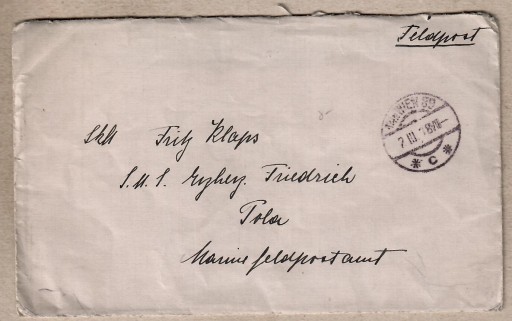 Feldpost
Fritz Klaps
S.M.S. Erzhrz. Friedrich
Pola
Marinefeldpostamt
* C *